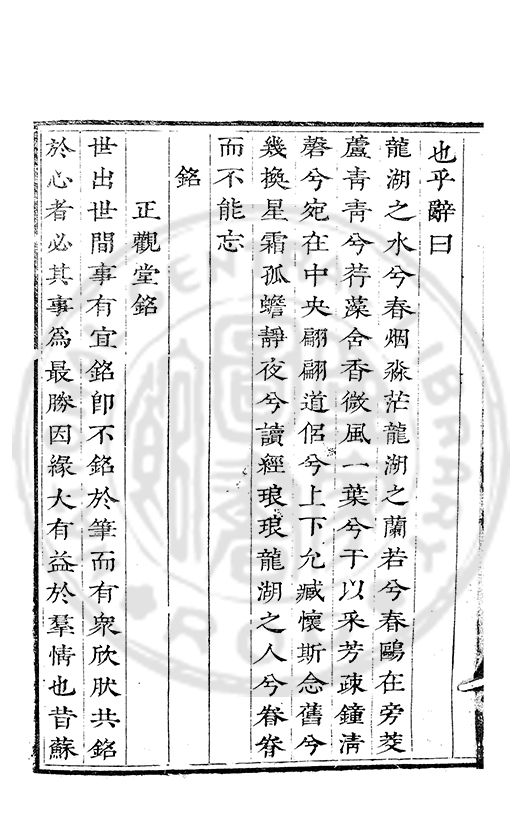 也乎辭曰
龍湖之水兮春烟淼茫龍湖之蘭若兮春鷗在旁菱
蘆青青兮荇藻舍香微風一葉兮于以采芳疎鐘清
磬兮宛在中央翩翩道侣兮上下允臧懷斯念舊兮
幾換星霜孤蟾靜夜兮讀經琅琅龍湖之人兮眷眷
而不能忘
銘
正觀堂銘
世出世間事有宜銘卽不銘於筆而有衆欣肰共銘
於心者必其事爲最勝因緣大有益於羣情也昔蘇